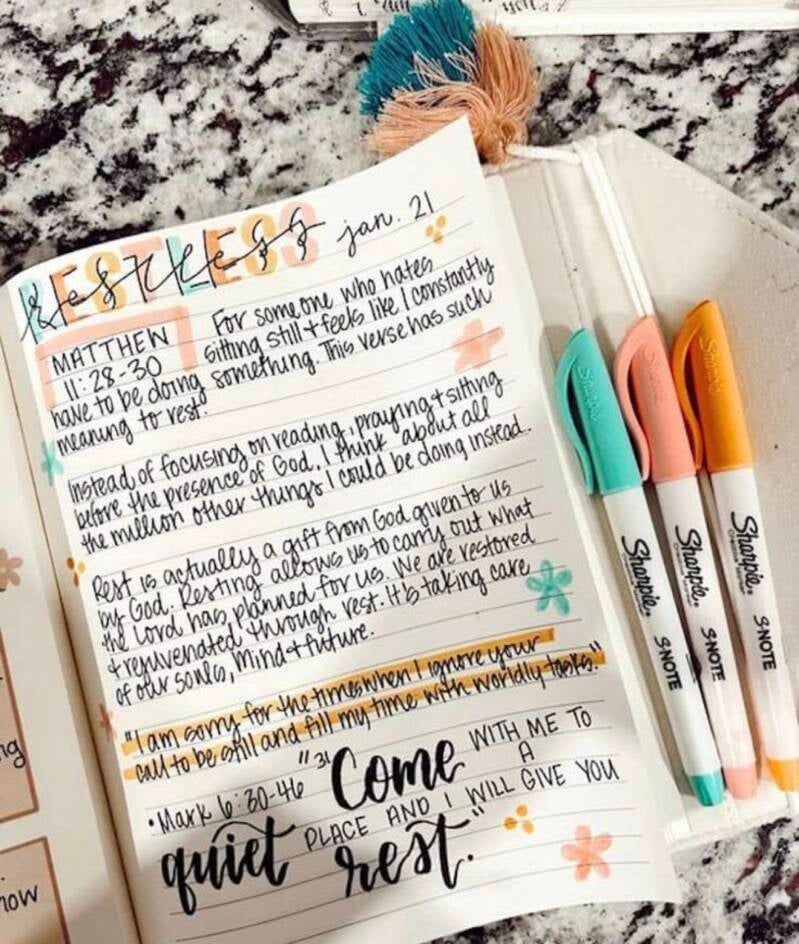 RESTLESS
restless jan. 21
MATTHEW
11:28-30
For someone who hates
sitting still + feels like I constantly
have to be doing something. This verse has such
meaning to rest.
Instead of focusing on reading, praying + sitting
before the presence of God, I think about all
the million other things I could be doing instead.
Rest is actually a gift from God given to us
by God. Resting allows us to carry out what
the Lord has planned for us. We are restored
+ rejuvendted through rest. It is taking care
of our souls, mind + future.
"I am sorry for the times when I ignore your
call to be still and fill my time with worldly tasks."
• Mark 6:30-46 "31 Come WITH ME TO
A
quiet PLACE AND I WILL GIVE YOU
rest."
Sharpie
S·NOTE
Sharpie
S·NOTE
Sharpie
S·NOTE
Sharpie
Sharpie
Sharpie
ng
now